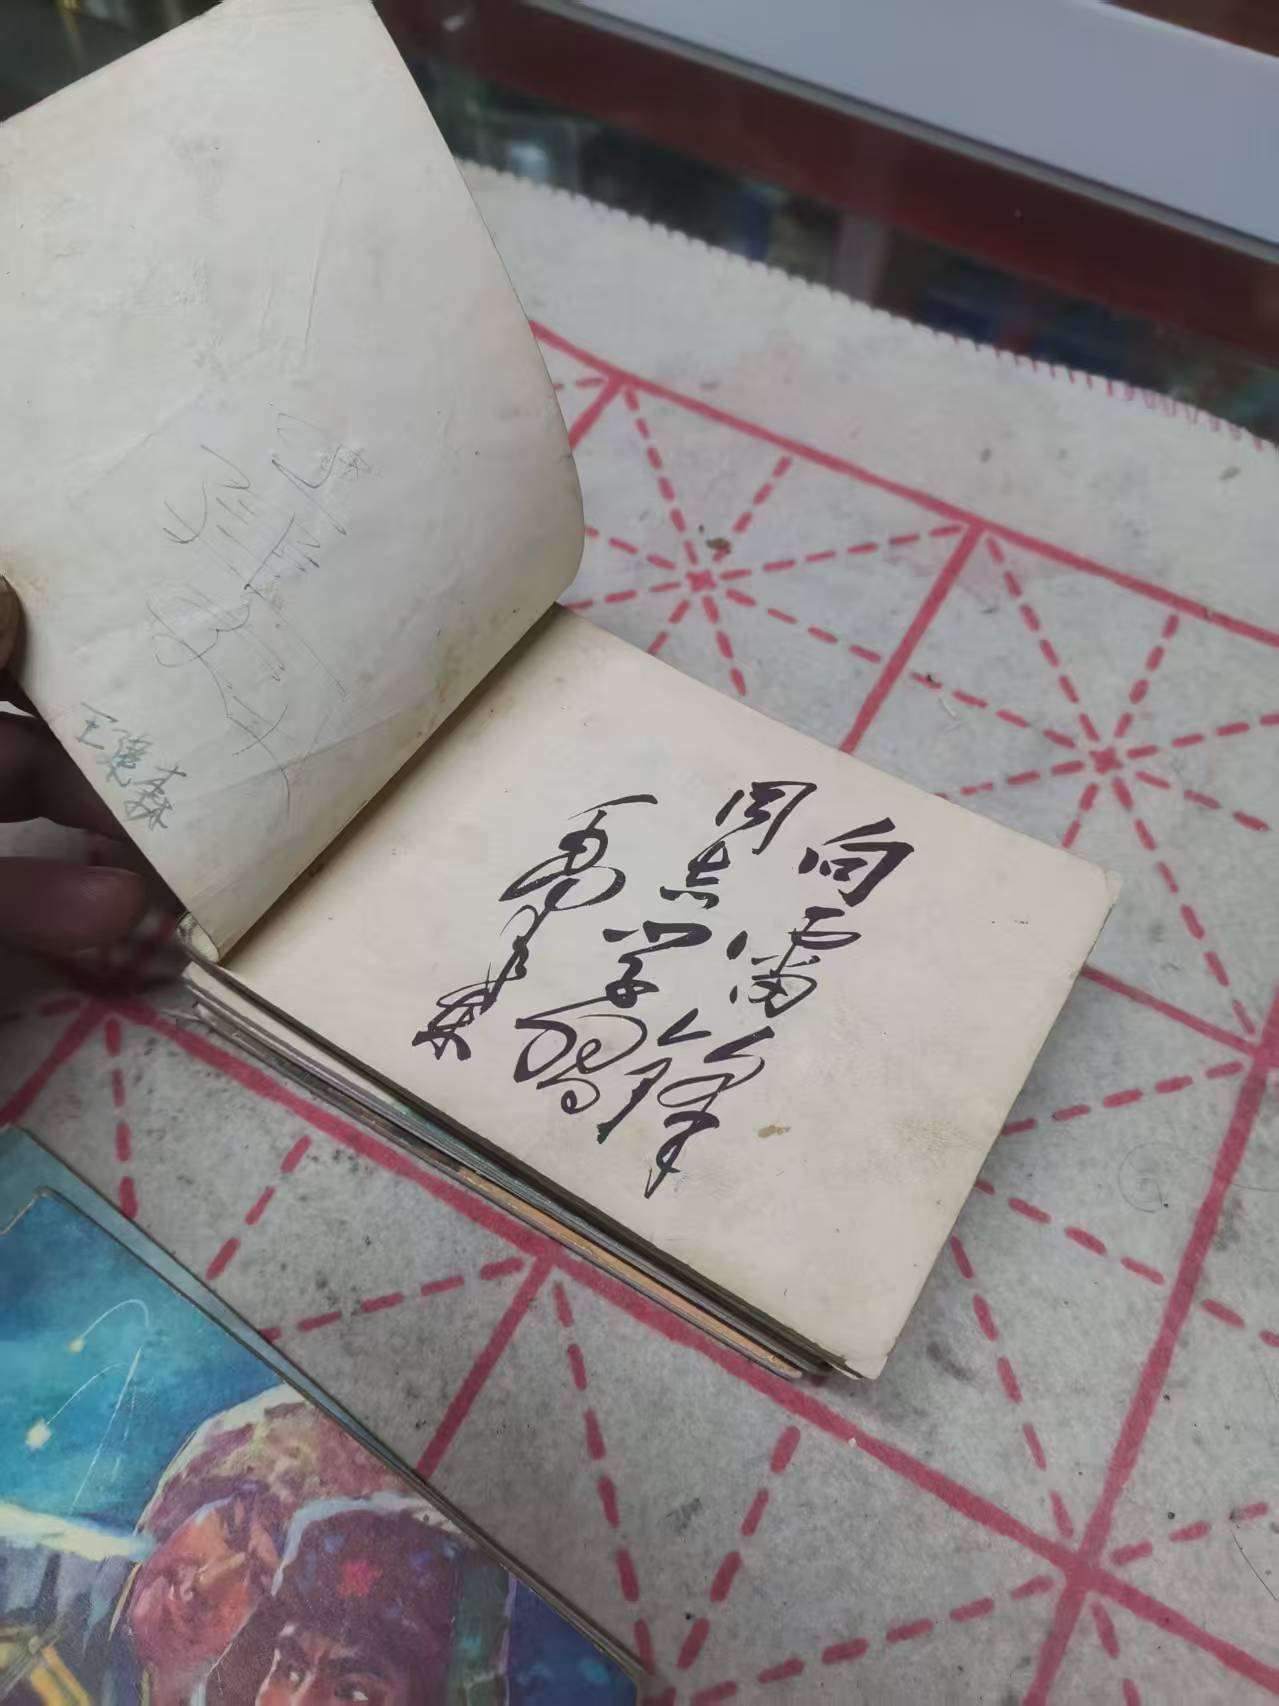 向雷锋
同志学习
毛泽东
王建森